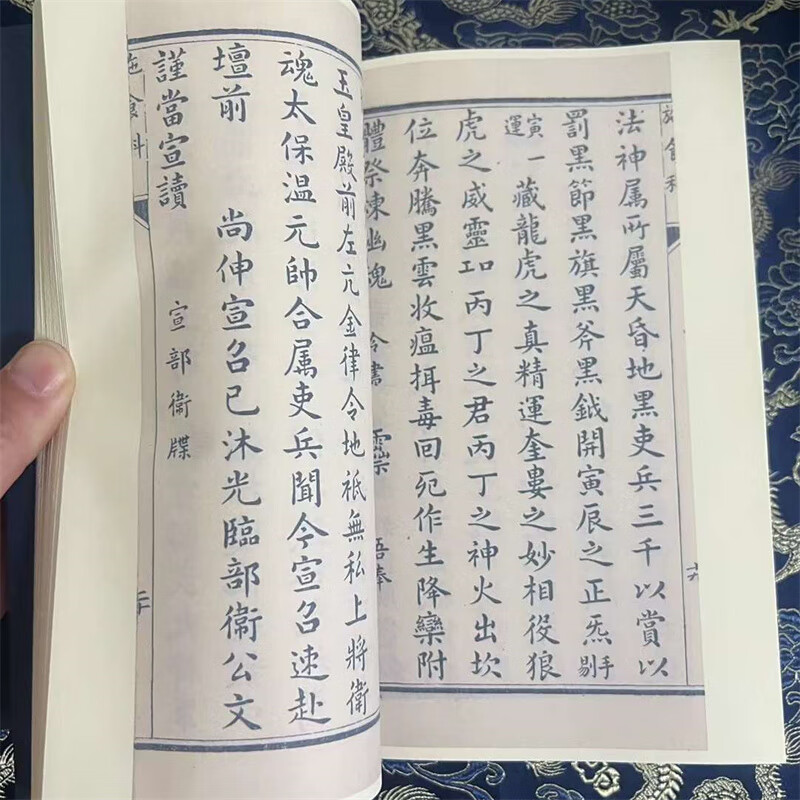 施食科
法神属所屬天昏地黑吏兵三千以賞以
罰黑節黑旗黑斧黑鉞開寅辰之正炁 手剔
寅運 一藏龍虎之真精運奎婁之妙相役狼
虎之威靈 丙丁之君丙丁之神火出坎
位奔騰黑雲收瘟挕毒回死作生降欒附
體祭煉幽魂
玉皇殿前左亢金律令地祇無私上將衛
魂太保温元帥合属吏兵聞今宣召速赴
壇前 尚伸宣召已沐光臨部衛公文
謹當宣讀 宣部衛牒
施食科